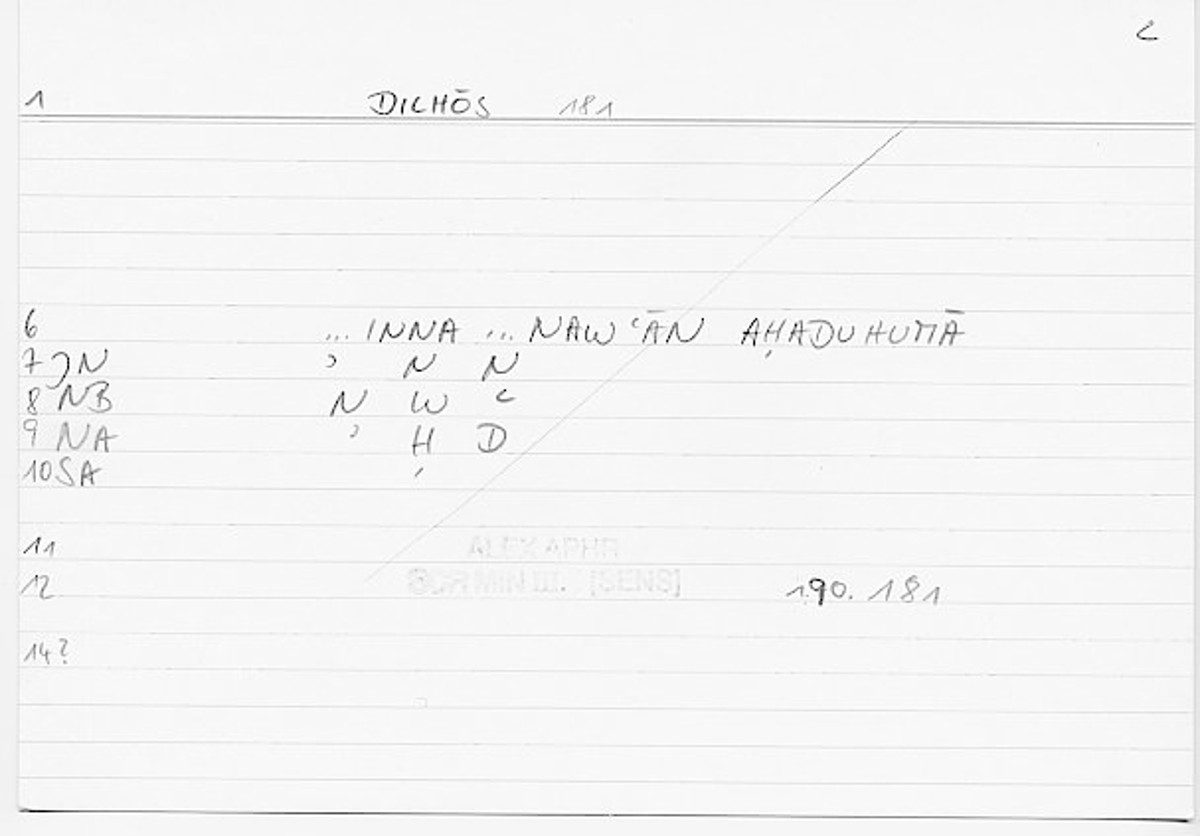 C
1 DICHŌS 181
6 ... INNA ... NAWʿĀN AḤADUHUMĀ
7 ʾN ʾ N N
8 NB N W ʿ
9 NA ʾ Ḥ D
10 SA
11 ALEX APHR
12 SCR MIN III. [SENS] 190. 181
14?